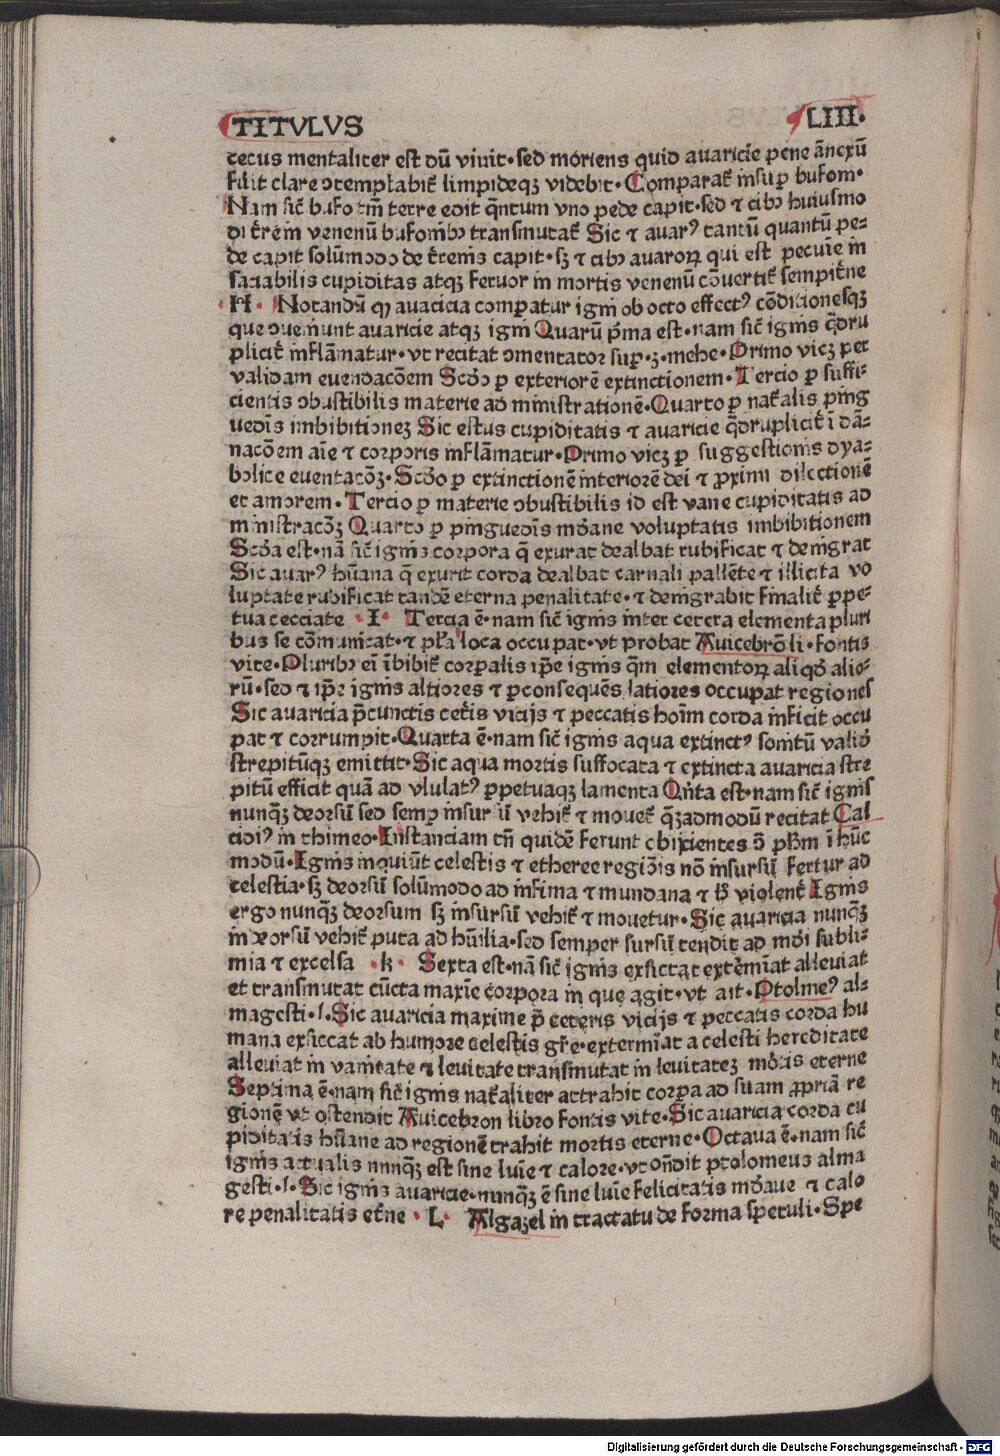 TITVLVS LIII.
cecus mentaliter est dū viuit·sed moriens quid auaricie pene ānexū
fuerit clare ↄtemplabit᷑ limpideqꝫ videbit·Comparat᷑ insuꝑ bufoni·
Nam sic̄ bufo tm̄ terre edit q̄ntum vno pede capit·sed ⁊ cibꝰ huiusmo
di t᷑reni in venenū bufonibꝰ transmutat᷑ Sic ⁊ auarꝰ tantū quantū pe⸗
de capit solūmodo de t᷑renis capit·sꝫ ⁊ cibꝰ auaroꝝ qui est pecuīe in
saciabilis cupiditas atqꝫ feruor in mortis venenū cōuertit᷑ sempit᷑ne
·H· Notandū ꝙ auaricia compatur igni ob octo effectꝰ cōditionesqꝫ
que ↄueniunt auaricie atqꝫ igni Quarū p̄ma est·nam sic̄ ignis q̄dru
plicit᷑ inflāmatur·vt recitat ↄmentator suꝑ·3·methe·Primo vicꝫ per
validam euentacōem Scd̄o ꝑ exteriorē extinctionem·Tercio ꝑ suffi⸗
cientis ↄbustibilis materie ad ministrationē·Quarto ꝑ nat᷑alis ping
uedīs imbibitioneꝫ Sic estus cupiditatis ⁊ auaricie q̄druplicit᷑ ī dā⸗
nacōem aīe ⁊ corporis inflāmatur·Primo vicꝫ ꝑ suggestionis dya⸗
bolice euentacōꝫ·Scd̄o ꝑ extinctionē interiorē dei ⁊ ꝓximi dilectionē
et amorem·Tercio ꝑ materie ↄbustibilis id est vane cupiditatis ad
ministracōꝫ Quarto ꝑ pinguedīs mūdane voluptatis imbibitionem
Scd̄a est·nā sic̄ ignis corpora q̄ exurat dealbat rubificat ⁊ denigrat
Sic auarꝰ hūana q̄ exurit corda dealbat carnali pallēte ⁊ illicita vo
luptate rubificat tandē eterna penalitate·⁊ denigrabit finalit᷑ ꝑpe⸗
tua cecitate ·I· Tercia ē·nam sic̄ ignis inter cetera elementa pluri
bus se cōmunicat·⁊ pl᷑a loca occupat·vt probat Auicebrō li·fontis
vite·Pluribꝰ eī ībibit᷑ corꝑalis ip̄e ignis q̄m elementoꝝ aliqd̄ alio⸗
rū·sed ⁊ ip̄e ignis altiores ⁊ ꝑconsequēs latiores occupat regiones
Sic auaricia p̄cunctis cet᷑is vicijs ⁊ peccatis hoīm corda inficit occu
pat ⁊ corrumpit·Quarta ē·nam sic̄ ignis aqua extinctꝰ sonitū validū
strepitūqꝫ emittit·Sic aqua mortis suffocata ⁊ extincta auaricia stre
pitū efficit quā ad vlulatꝰ ꝑpetuaqꝫ lamenta Qn̄ta est·nam sic̄ ignis
nunqꝫ deorsū sed semꝑ insursū vehit᷑ ⁊ mouet᷑ qꝫadmodū recitat Cal
cidiꝰ in thimeo·Instanciam tn̄ quidē ferunt obijcientes ↄ̄ ph̄m ī hūc
modū·Ignis inquiūt celestis ⁊ etheree regiōis nō insursū fertur ad
celestia·sꝫ deorsū solūmodo ad infima ⁊ mundana ⁊ h̄ violent᷑ Ignis
ergo nunqꝫ deorsum sꝫ insursū vehit᷑ ⁊ mouetur·Sic auaricia nunqꝫ
in deorsū vehit᷑ puta ad hūilia·sed semper sursū tendit ad mūdi subli⸗
mia ⁊ excelsa ·k· Sexta est·nā sic̄ ignis exsiccat extermīat alleuiat
et transmutat cūcta maxīe corpora in que agit·vt ait·Ptolmeꝰ al⸗
magesti·1·Sic auaricia maxime p̄ ceteris vicijs ⁊ peccatis corda hu
mana exsiccat ab humore celestis gr̄e·extermīat a celesti hereditate
alleuiat in vanitate ⁊ leuitate transmutat in leuitateꝫ mōtis eterne
Septima ē·nam sic̄ ignis nat᷑aliter attrahit corꝑa ad suam ꝓpriā re
gionē vt ostendit Auicebron libro fontis vite·Sic auaricia corda cu
piditatis hūane ad regionē trahit mortis eterne·Octaua ē·nam sic̄
ignis actualis nunqꝫ est sine luīe ⁊ calore·vt oñdit ptolomeus alma
gesti·1·Sic ignis auaricie·nunqꝫ ē sine luīe felicitatis mūdane ⁊ calo
re penalitatis et᷑ne ·L· Algaꝫel in tractatu de forma speculi·Spe
Digitalisierung gefördert durch die Deutsche Forschungsgemeinschaft - DFG